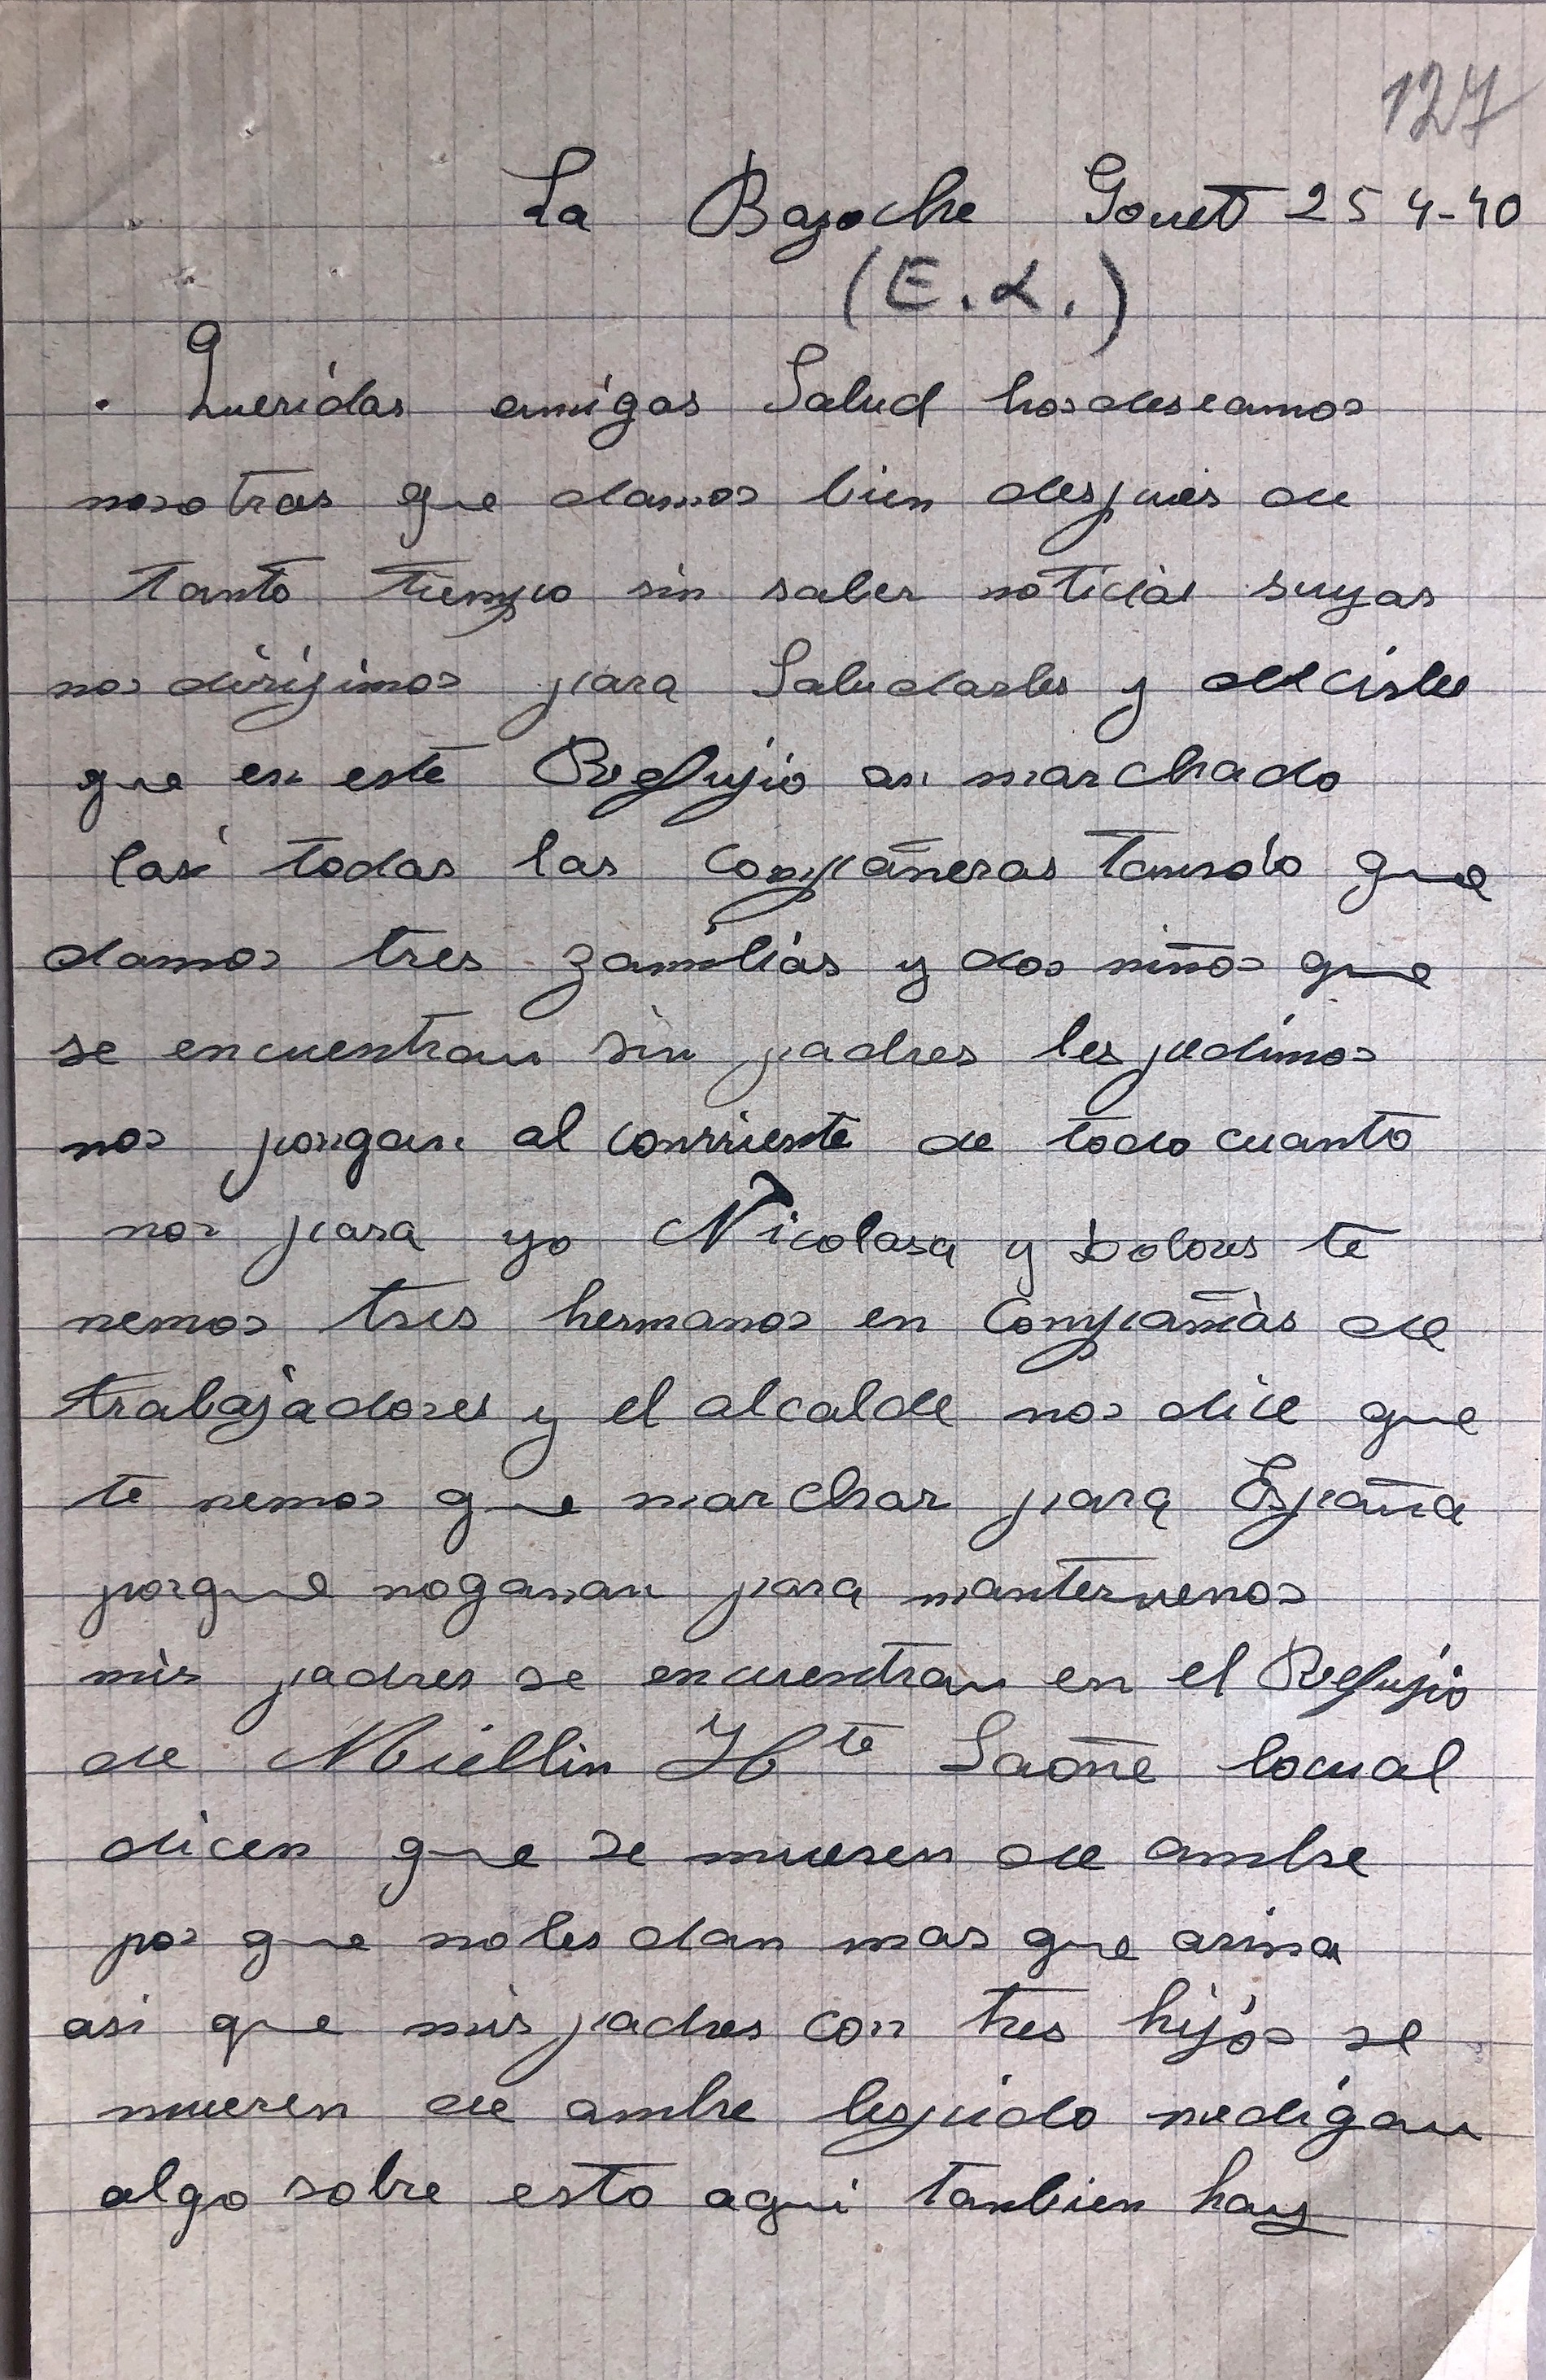 127
La Bazoche Gouet 25 4-40
(E. L.)
Queridas amigas Salud hos deseamos
nosotras que damos bien despues de
tanto tiempo sin saber noticias suyas
nos dirijimos para Saludarles y decirles
que en este Refujio an marchado
casi todas las compañeras
que
damos tres familias y dos niños que
se encuentran sin padres les pedimos
nos pongan al corriente de todo cuanto
nos pasa yo Nicolasa y Dolores te
nemos tres hermanos en Compañias de
trabajadores y el alcalde nos dice que
te nemos que marchar para España
porque no ganan para
mis padres se encuentran en el Refujio
de Miellin Hte Saône locual
dicen que se mueren de ambre
por que no les dan mas que arina
asi que mis padres con tres hijos se
mueren de ambre les pido me digan
algo sobre esto aqui tanbien hay